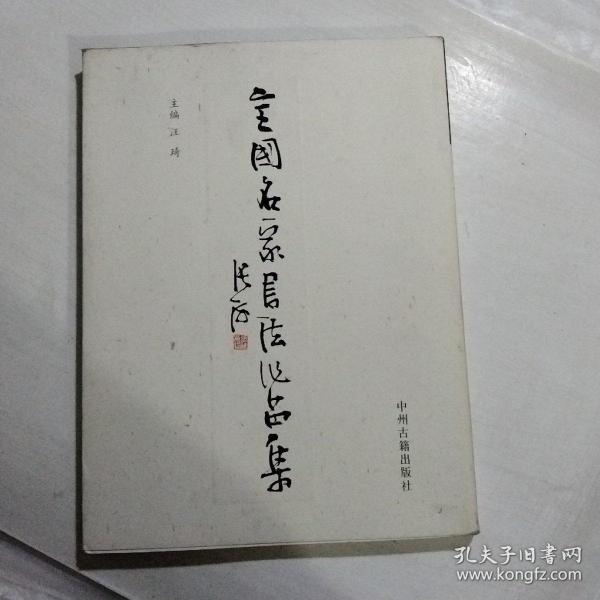 主编 汪 琦
全國名家書法作品集
張海
中州古籍出版社
孔夫子旧书网
www.kongfz.com